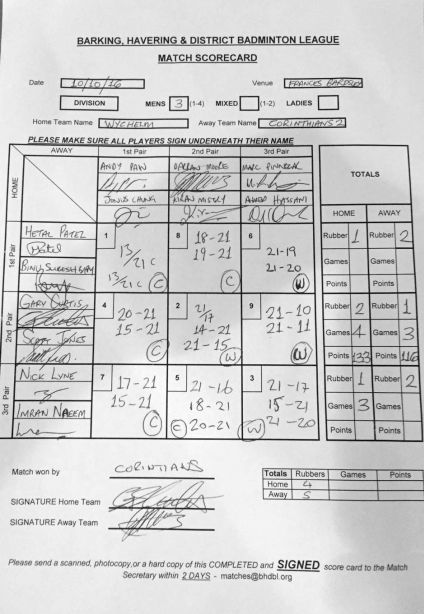 BARKING, HAVERING & DISTRICT BADMINTON LEAGUE
MATCH SCORECARD
Date 10/10/16 Venue FRANCES BARDSLEY
DIVISION MENS 3 (1-4) MIXED (1-2) LADIES
Home Team Name WYCHELM Away Team Name CORINTHIANS 2
PLEASE MAKE SURE ALL PLAYERS SIGN UNDERNEATH THEIR NAME
AWAY 1st Pair 2nd Pair 3rd Pair
HOME
ANDY PAW MOORE MARC
CHUNG KIRAN MISTRY HYSSANI
TOTALS
HOME AWAY
1st Pair
HETAL PATEL
Hetal
1 13/21 13/21 C C
8 18-21 19-21 C
6 21-19 21-20 W
Rubber 1 Rubber 2
Games Games
Points Points
2nd Pair
GARY CURTIS
SCOTT JONES
4 20-21 15-21 C
2 21/17 14-21 21-15 W
9 21-10 21-11 W
Rubber 2 Rubber 1
Games 4 Games 3
Points 133 Points 116
3rd Pair
NICK LYNE
IMRAN NAEEM
7 17-21 15-21 C
5 21-16 18-21 C 20-21
3 21-17 15-21 W 21-20
Rubber 1 Rubber 2
Games 3 Games
Points Points
Match won by CORINTIANS
Totals Rubbers Games Points
Home 4
Away 5
SIGNATURE Home Team
SIGNATURE Away Team
Please send a scanned, photocopy,or a hard copy of this COMPLETED and SIGNED score card to the Match
Secretary within 2 DAYS - matches@bhdbl.org